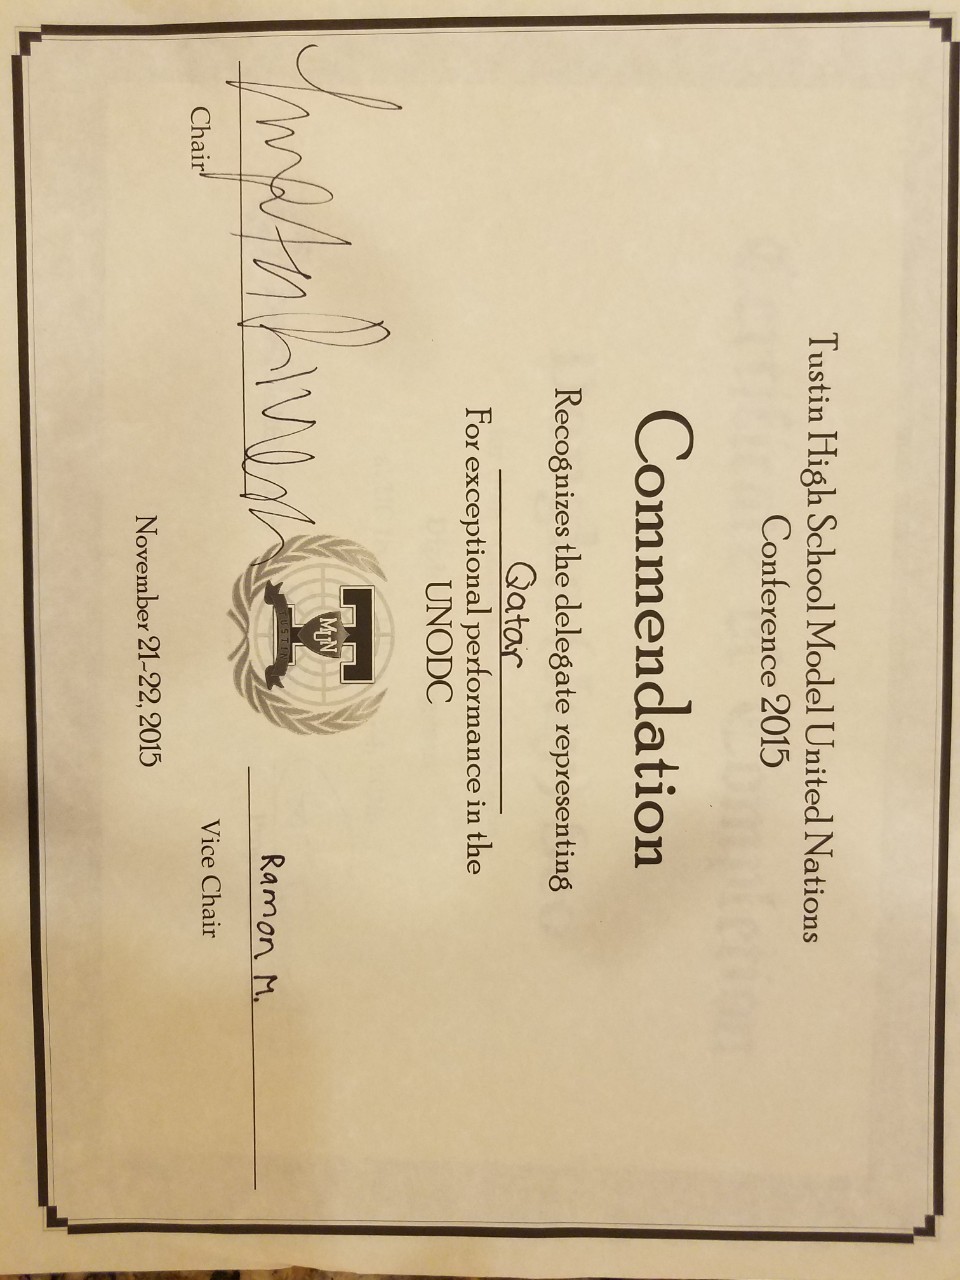 Tustin High School Model United Nations
Conference 2015
Commendation
Recognizes the delegate representing
Qatar
For exceptional performance in the
UNODC
MUN
TUSTIN
Ramon M.
Chair
Vice Chair
November 21-22, 2015